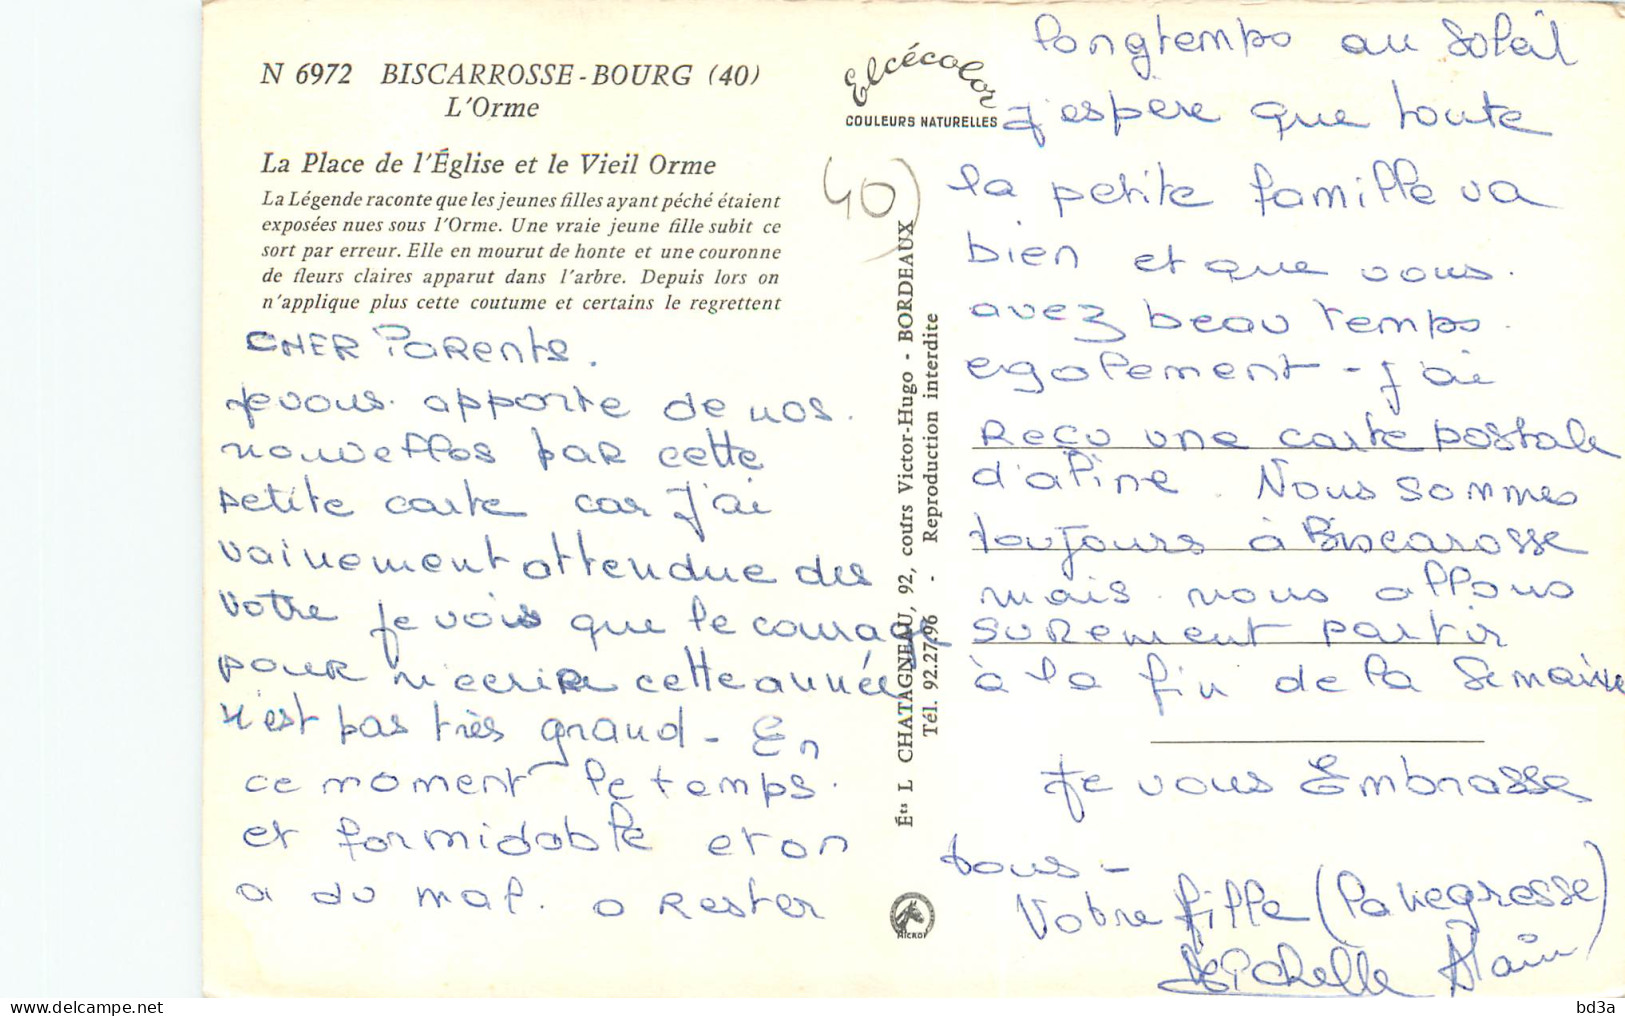 N 6972 BISCARROSSE-BOURG (40)
L'Orme
La Place de l'Église et le Vieil Orme
La Légende raconte que les jeunes filles ayant péché étaient
exposées nues sous l'Orme. Une vraie jeune fille subit ce
sort par erreur. Elle en mourut de honte et une couronne
de fleurs claires apparut dans l'arbre. Depuis lors on
n'applique plus cette coutume et certains le regrettent
Elcécolor
COULEURS NATURELLES
40)
CHER Parents.
Je vous apporte de nos
nouvelles par cette
petite carte car J'ai
vainement attendue des
votre je vois que le courage
pour m'ecrire cette année
n'est pas très grand - En
ce moment le temps
et formidable et on
a du mal. a Rester
Éts L CHATAGNEAU, 92, cours Victor-Hugo - BORDEAUX
Tél. 92.27.96 - Reproduction interdite
MICKOF
longtemps au soleil
J'espère que toute
la petite famille va
bien et que vous.
avez beau temps
egalement - J'ai
Reçu une carte postale
d'aline. Nous sommes
toujours à Biscarosse
mais nous allons
surement partir
à la fin de la semaine
Je vous Embrasse
tous -
Votre fille (la negresse)
Michelle Alain
bd3a